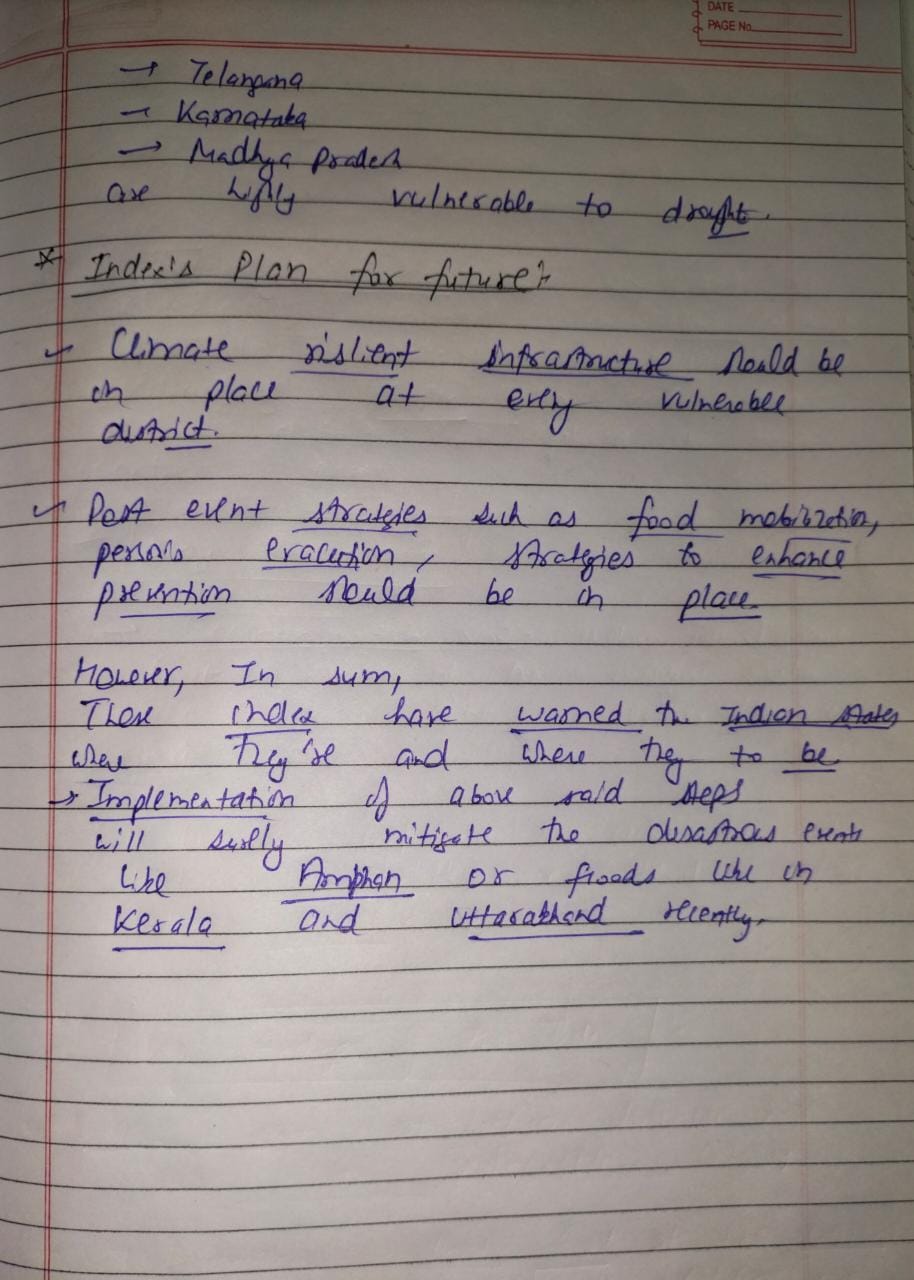 DATE
PAGE No.
→ Telangana
→ Karnataka
→ Madhya Pradesh
are highly vulnerable to drought.
* Index's Plan for future:-
✓ Climate rislient infrastructure should be
in place at every vulnerable
district.
✓ Post event strategies such as food mobilization,
persons evacuation, strategies to enhance
prevention should be in place.
However, In sum,
These index have warned the Indian states
where they're and where they to be
→ Implementation of above said steps
will surely mitigate the disastrous events
like Amphan or floods like in
Kerala and Uttarakhand recently.